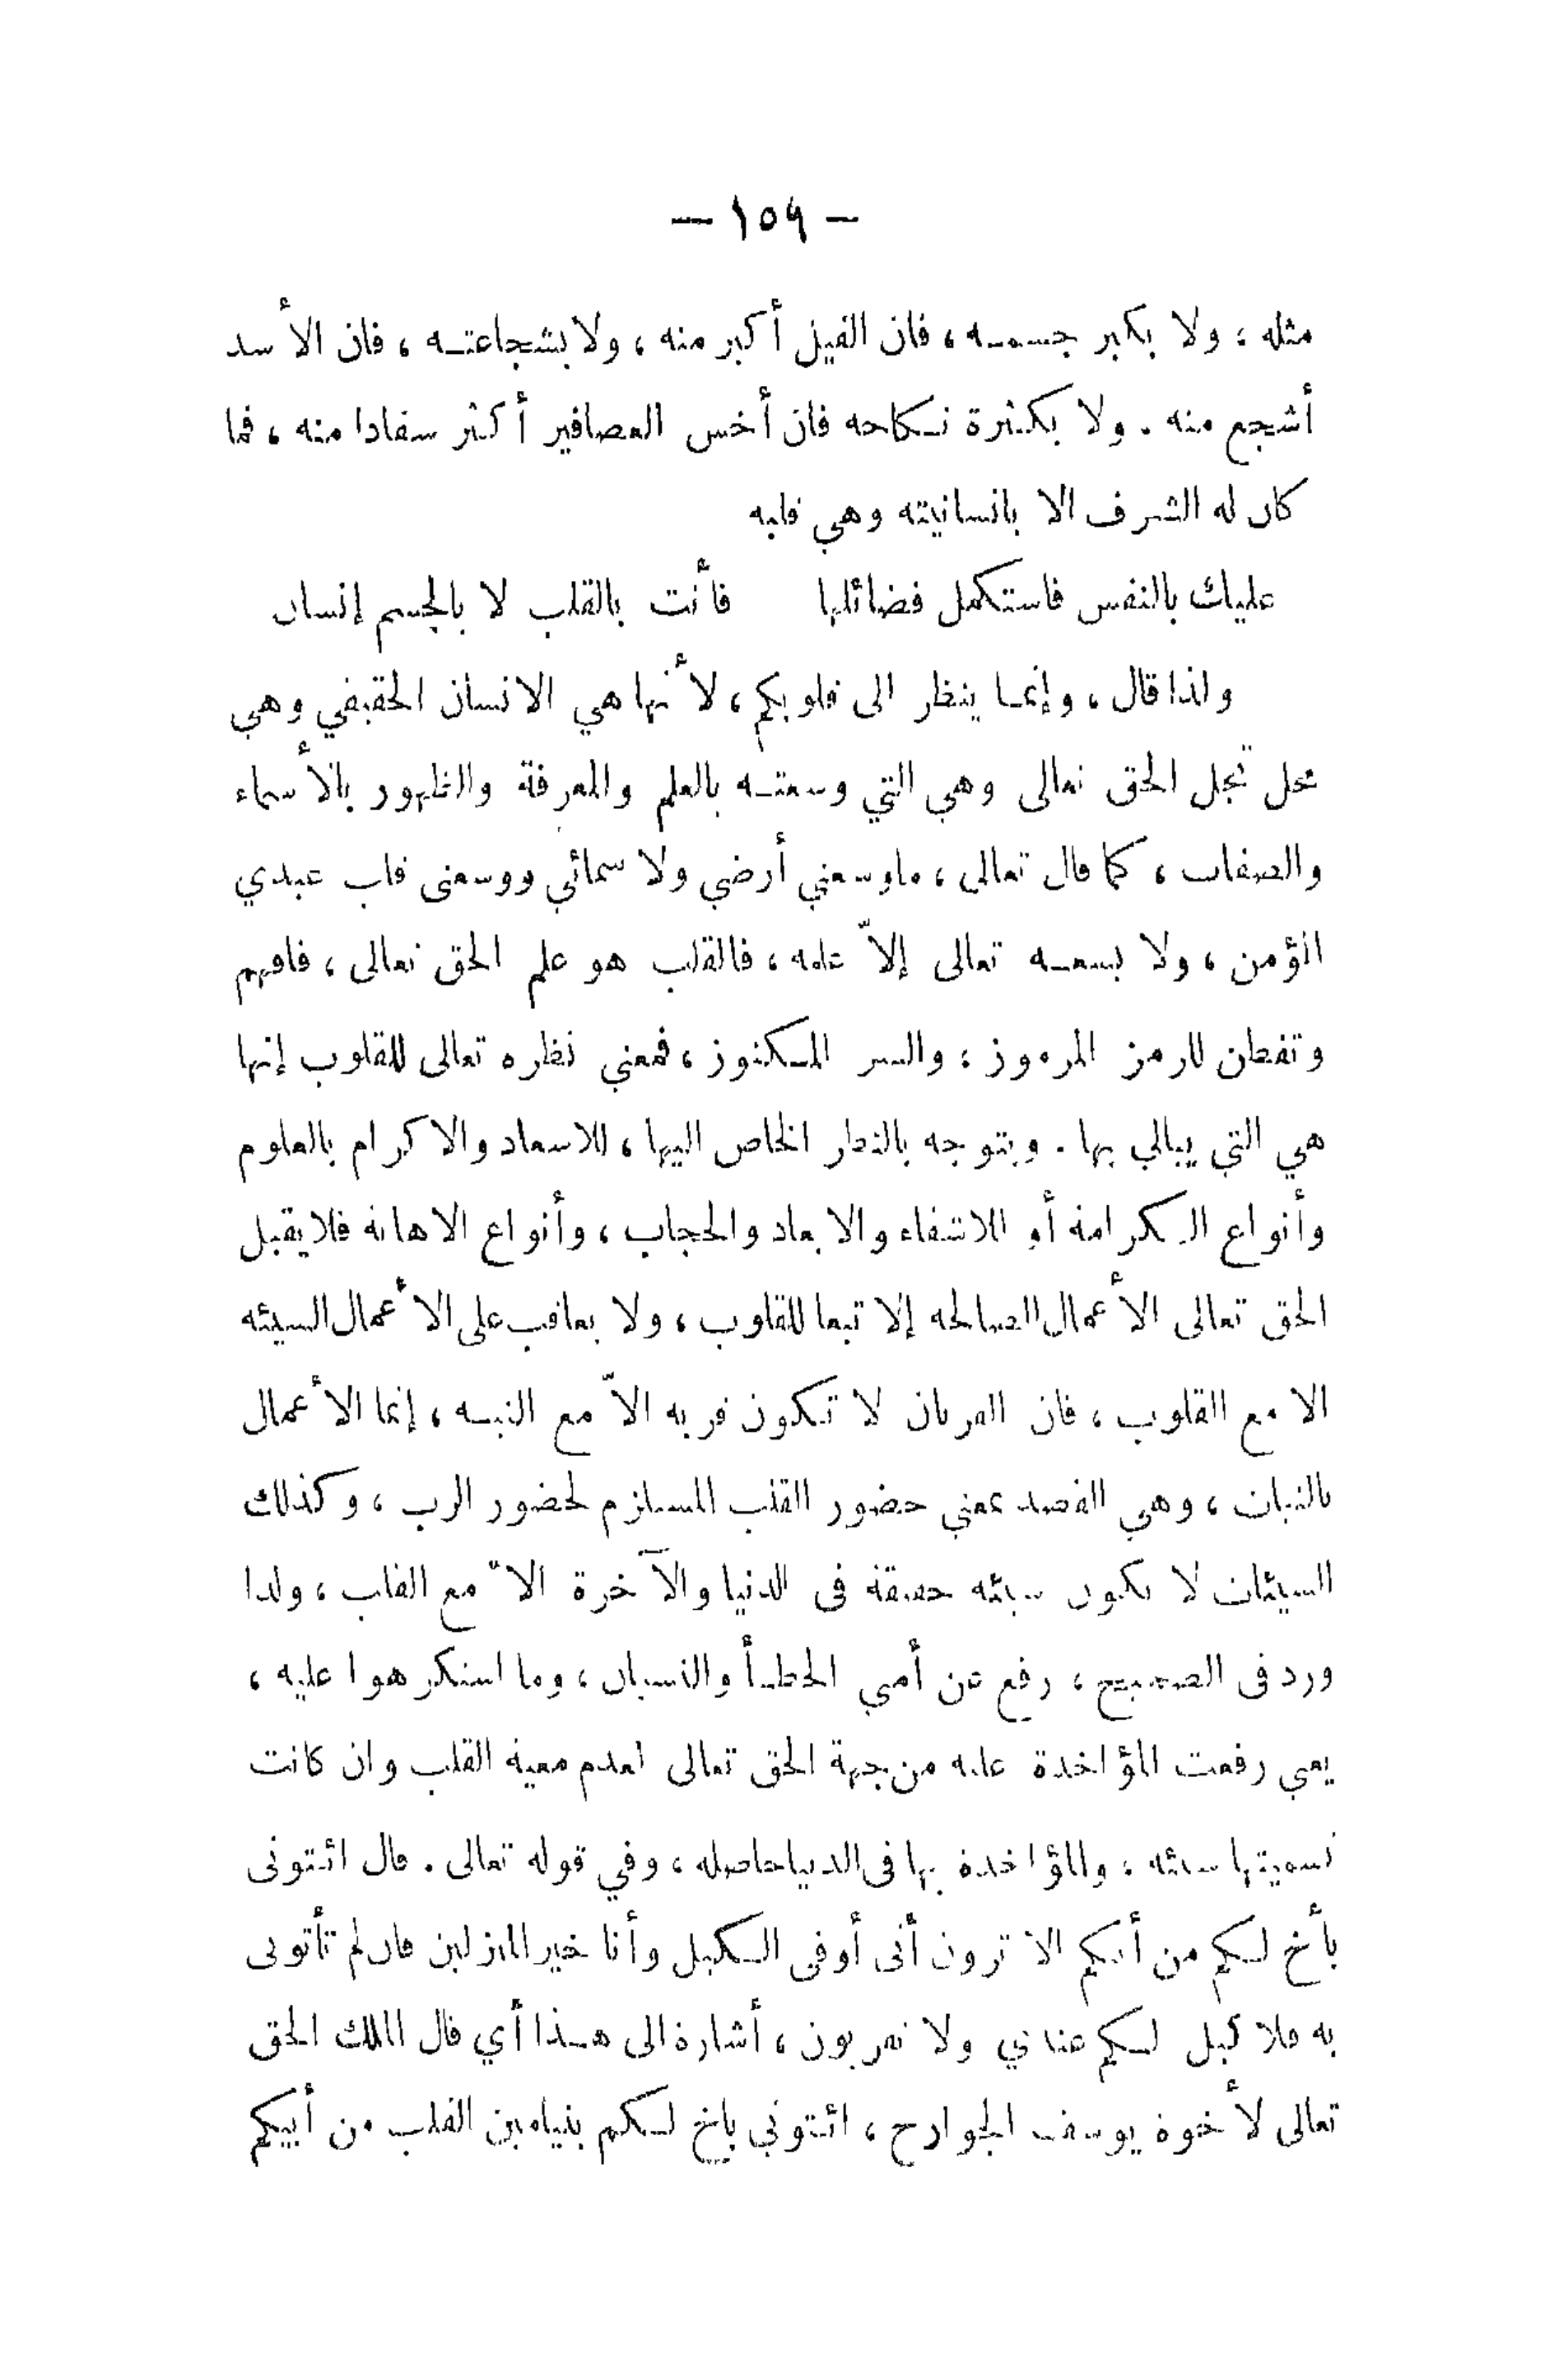 — ١٥٩ —
مثله ، ولا بكبر جسمـه ، فان الفيل أكبر منه ، ولا بشجاعتـه ، فان الأسد
أشجع منه . ولا بكثرة نكاحه فان أخس العصافير أكثر سفادا منه ، فما
كان له الشرف الا بانسانيته وهي قلبه
عليك بالنفس فاستكمل فضائلها    فأنت بالقلب لا بالجسم إنسان
ولذا قال ، وإنما ينظر الى قلوبكم ، لأنها هي الانسان الحقيقي وهي
محل تجل الحق تعالى وهي التي وسعتـه بالعلم والمعرفة والظهور بالأسماء
والصفات ، كما قال تعالى ، ماوسعني أرضي ولا سمائي ووسعنى قلب عبدي
المؤمن ، ولا يسعـه تعالى إلاّ علمه ، فالقلب هو علم الحق تعالى ، فافهم
وتفطن للرمز المرموز ، والسر المكنوز ، فمعني نظره تعالى للقلوب إنها
هي التي يبالي بها . ويتوجه بالنظر الخاص اليها ، للاسعاد والاكرام بالعلوم
وأنواع الكرامة أو للاشقاء والابعاد والحجاب ، وأنواع الاهانه فلا يقبل
الحق تعالى الأعمال الصالحه إلا تبعا للقلوب ، ولا يعاقب على الأعمال السيئه
الا مع القلوب ، فان القربان لا تكون قربه الاّ مع النيـه ، إنما الأعمال
بالنيات ، وهي القصد بمعني حضور القلب المستلزم لحضور الرب ، وكذلك
السيئات لا تكون سيئه حقيقة فى الدنيا والآخرة الاّ مع القلب ، ولذا
ورد فى الصحيح ، رفع عن أمتي الخطأ والنسيان ، وما استكرهوا عليه ،
يعني رفعت المؤاخذة عليه من جهة الحق تعالى لعدم معية القلب وان كانت
تسميتها سيئه ، والمؤاخذة بها فى الدنيا حاصله ، وفي قوله تعالى . قال ائتونى
بأخ لكم من أبيكم الا ترون أنى أوفي الكيل وأنا خير المنزلين فان لم تأتونى
به فلا كيل لكم عندي ولا تقربون ، أشارة الى هـذا أي قال الملك الحق
تعالى لأخوة يوسف الجوارح ، ائتوني باخ لكم بنيامين القلب من أبيكم